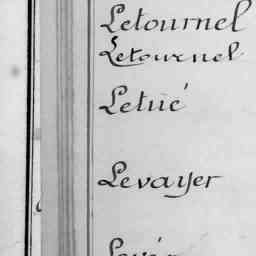 Letournel
Letournel
Letué
Levayer